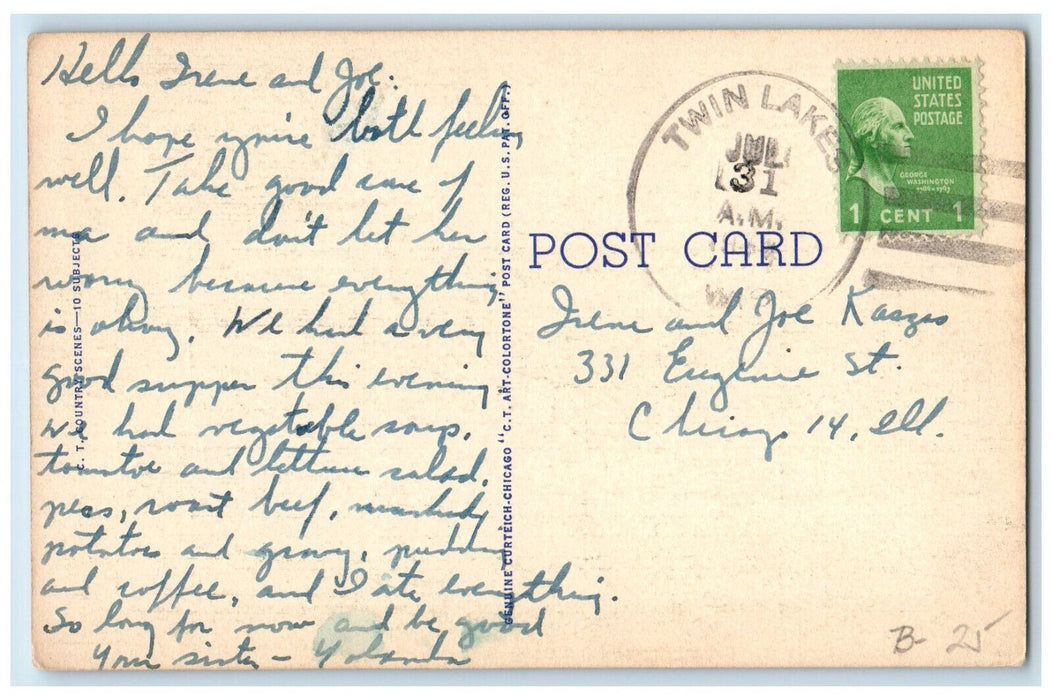 Hello Irene and Joe:
I hope you're both feeling
well. Take good care of
ma and don't let her
worry because everything
is okay. We had a very
good supper this evening
we had vegetable soup,
tomatoe and lettuce salad,
peas, roast beef, mashed
potatoes and gravy, pudding
and coffee, and I ate everything.
So long for now and be good
Your sister – Yolanda
C. T. COUNTRY SCENES—10 SUBJECTS
GENUINE CURTEICH-CHICAGO "C. T. ART-COLORTONE" POST CARD (REG. U. S. PAT. OFF.)
TWIN LAKES
JUL
31
A.M.
UNITED
STATES
POSTAGE
GEORGE
WASHINGTON
1789-1797
1 CENT 1
POST CARD
Irene and Joe Kaszas
331 Eugenie St.
Chicago 14, Ill.
B- 25